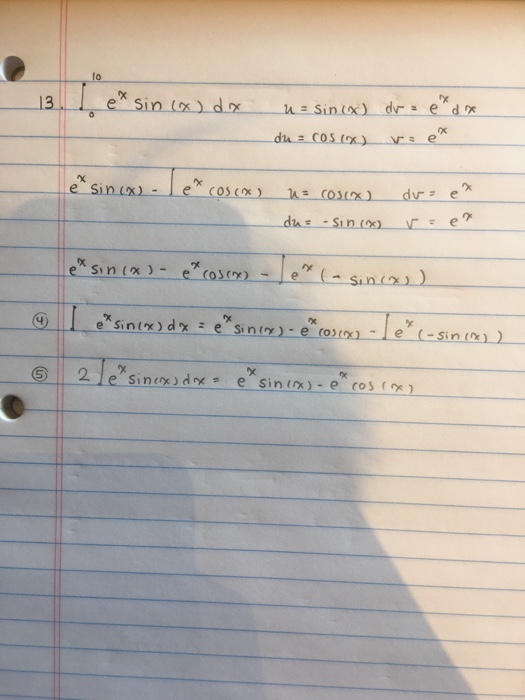 10
13. ∫ e^x sin(x) dx u = sin(x) dv = e^x dx
0
du = cos(x) v = e^x
e^x sin(x) - ∫ e^x cos(x) u = cos(x) dv = e^x
du = -sin(x) v = e^x
e^x sin(x) - e^x cos(x) - ∫ e^x (-sin(x))
④ ∫ e^x sin(x) dx = e^x sin(x) - e^x cos(x) - ∫ e^x (-sin(x))
⑤ 2 ∫ e^x sin(x) dx = e^x sin(x) - e^x cos(x)